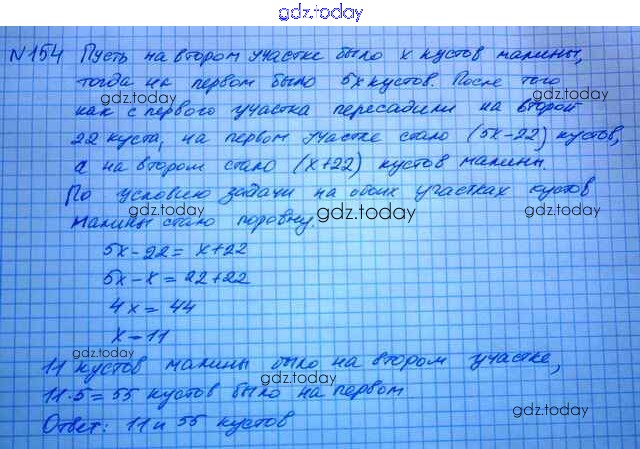 gdz.today
№154 Пусть на втором участке было x кустов малины,
тогда на первом было 5x кустов. После того
gdz.today
как с первого участка пересадили на второй
gdz.today
22 куста, на первом участке стало (5x-22) кустов,
а на втором стало (x+22) кустов малины.
По условию задачи на обоих участках кустов
gdz.today gdz.today
малины стало поровну.
5x-22=x+22
5x-x=22+22
4x=44
x=11
gdz.today
11 кустов малины было на втором участке,
gdz.today
11·5=55 кустов было на первом
gdz.today
Ответ: 11 и 55 кустов